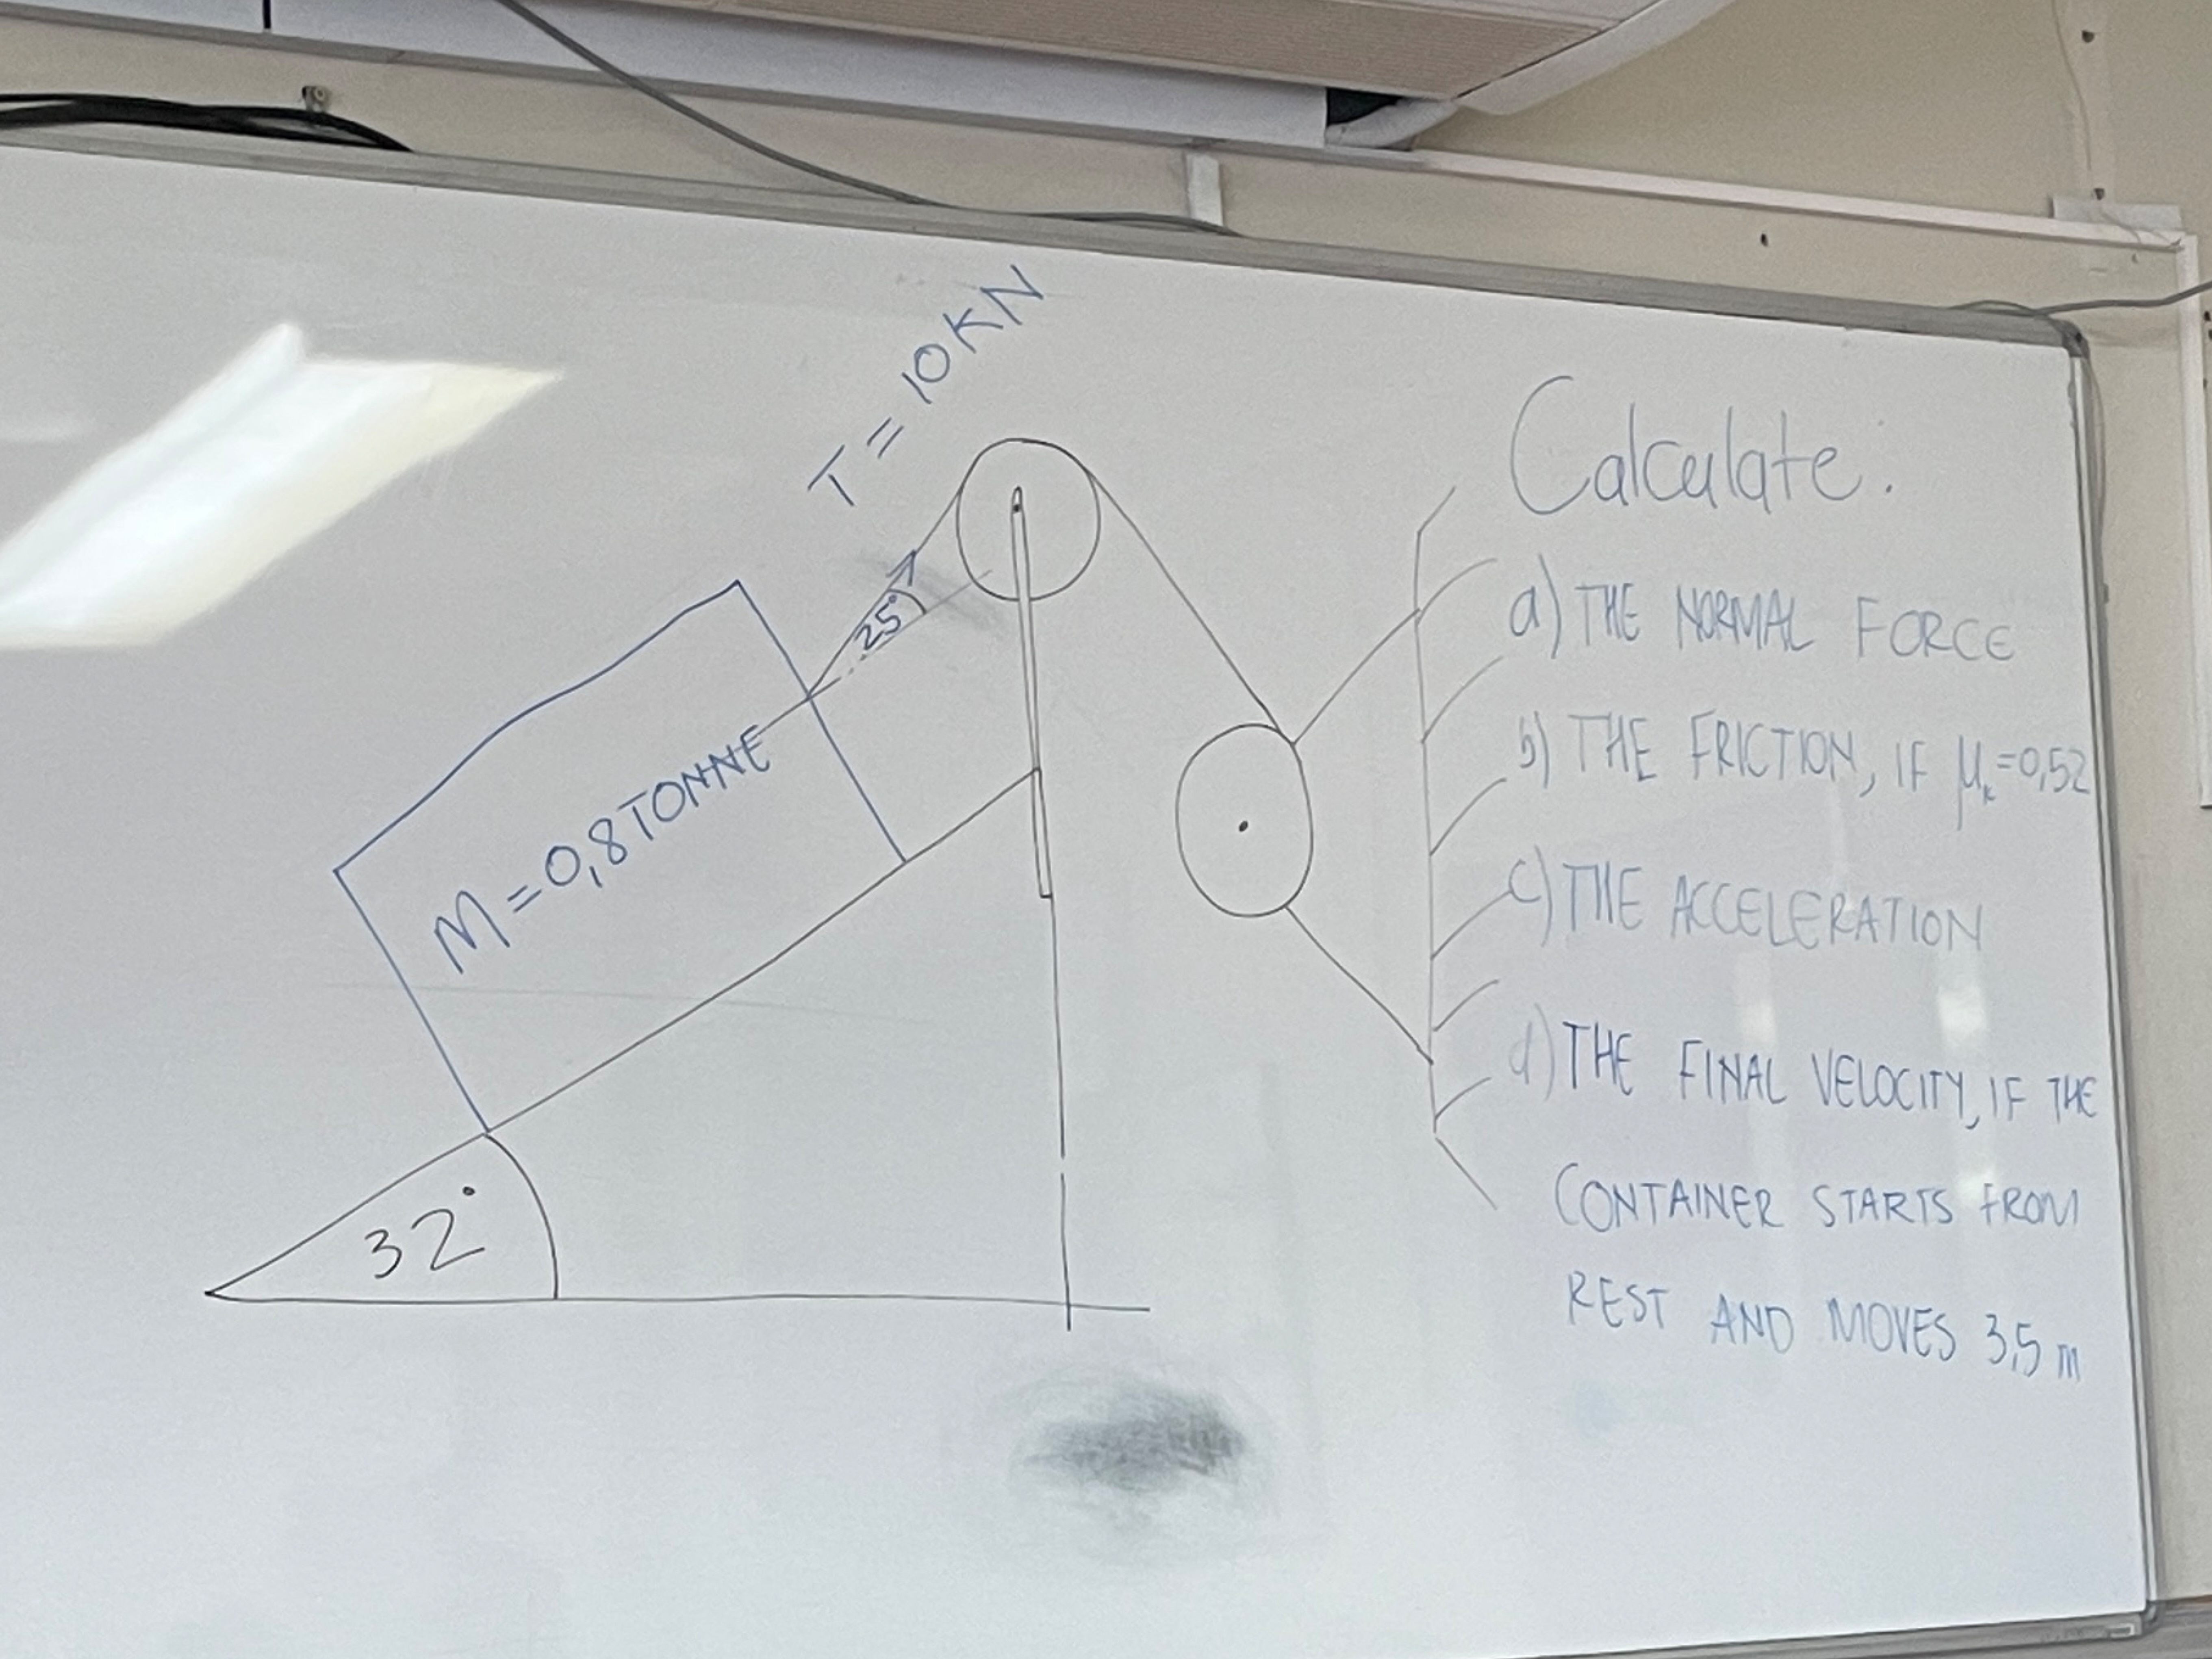 T = 10KN
25°
M = 0,8 TONNE
32°
Calculate:
a) THE NORMAL FORCE
b) THE FRICTION, IF μk=0,52
c) THE ACCELERATION
d) THE FINAL VELOCITY, IF THE
CONTAINER STARTS FROM
REST AND MOVES 3,5 m